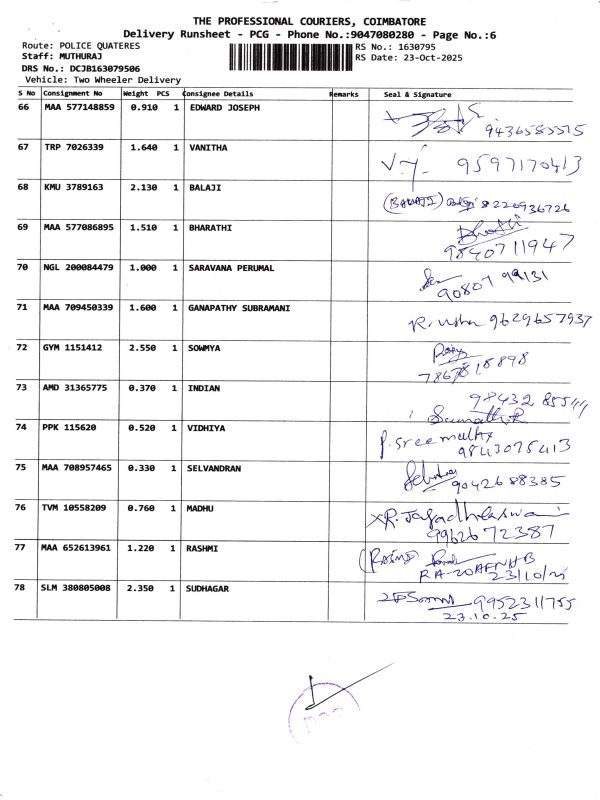 THE PROFESSIONAL COURIERS, COIMBATORE
Delivery Runsheet - PCG - Phone No.:9047080280 - Page No.:6
Route: POLICE QUATERES
RS No.: 1630795
Staff: MUTHURAJ
RS Date: 23-Oct-2025
DRS No.: DCJB163079506
Vehicle: Two Wheeler Delivery
S No Consignment No Weight PCS Consignee Details Remarks Seal & Signature
66 MAA 577148859 0.910 1 EDWARD JOSEPH
67 TRP 7026339 1.640 1 VANITHA 9597170413
68 KMU 3789163 2.130 1 BALAJI (BALAJI) 8220936726
69 MAA 577086895 1.510 1 BHARATHI
9840711947
70 NGL 200084479 1.000 1 SARAVANA PERUMAL
90807 99131
71 MAA 709450339 1.600 1 GANAPATHY SUBRAMANI R. Usha 9629657937
72 GYM 1151412 2.550 1 SOWMYA
73 AMD 31365775 0.370 1 INDIAN
74 PPK 115620 0.520 1 VIDHIYA
9843075413
75 MAA 708957465 0.330 1 SELVANDRAN 9042688385
76 TVM 10558209 0.760 1 MADHU
9962672387
77 MAA 652613961 1.220 1 RASHMI
23/10/25
78 SLM 380805008 2.350 1 SUDHAGAR 9952311755
23.10.25